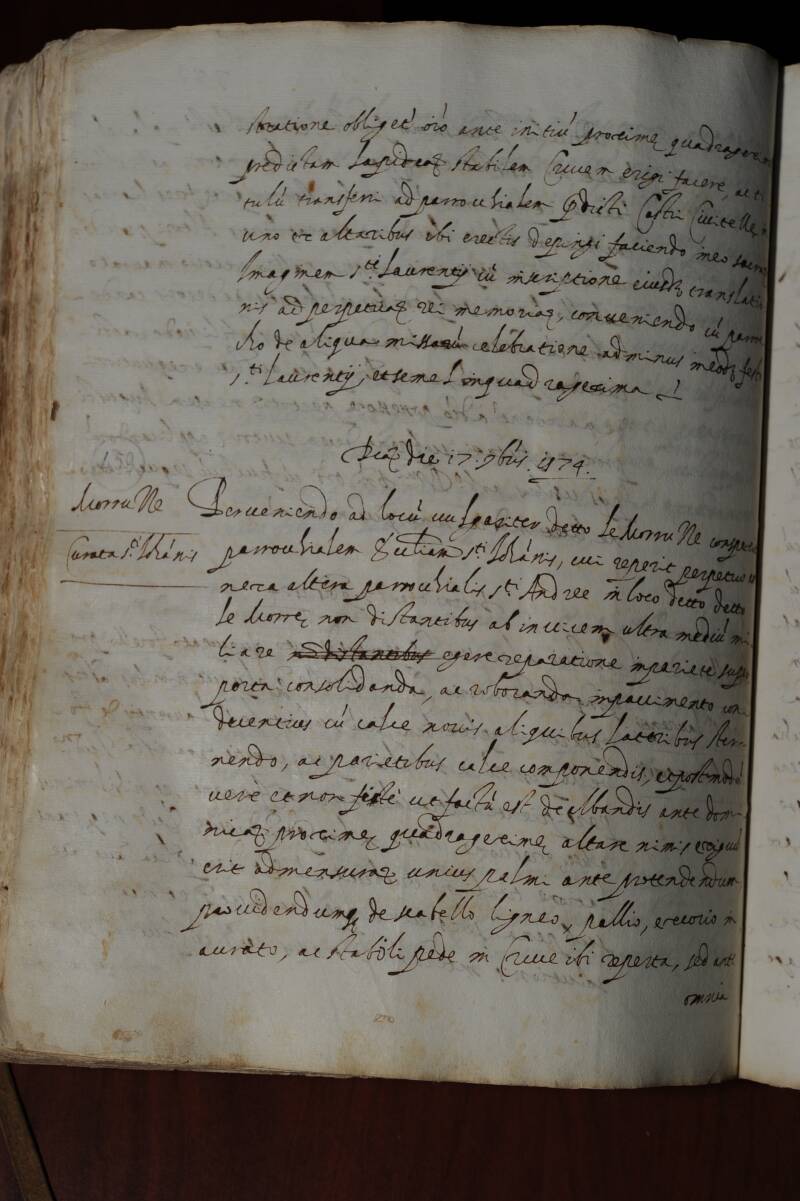 stratione obliget' oio ante initiu' proximę quadragesi
predictam lapideaȝ stabilem Crucem erigi facere, ac ti
tulu' transferri ad parrochialem predicti Castri Civitellę
uno ex altaribus ibi erectis depingi faciendo in eo sacra
Imaginem s.ti Laurentij cu' inscriptione eiusdȝ translati
nis ad perpetuaȝ rei memoriaȝ, conveniendo cu' parro
cho de aliqua missaru' celebratione ad minus in eodȝ festo
s.ti Laurentij, et semel in quadragesima
Die 17. 9bris. 1574.
Morru Ne
Curata s.ti Iohanis
Perveniendo ad locu' vulgariter detto le Morru Ne conspexit
parrochialem Ecclesiam s.ti Iohanis, cui reperit perpetuo
nexa altera parrochialis s.ti Andree in loco detto detto
le Morrę non distantibus ab invicem ultra mediu' mi
liare no distantibus egere reparatione in pariete supra
porta consolidanda, ac roboranda, in pavimento con
decentius cu' calce novis aliquibus latteribus ster
nendo, ac parietibus calce componendis, et postmodu'
vere et non ficte' ut factu' est dealbandis ante dom
nicaȝ proximę quadragesimę altare nimis exiguu'
erit ad mensuraȝ unius palmi ante protendendum
providendumqȝ de scabello ligneo, pallio, et
aurato, ac stabili pede in Cruce ibi reperta, sed ante
omnia